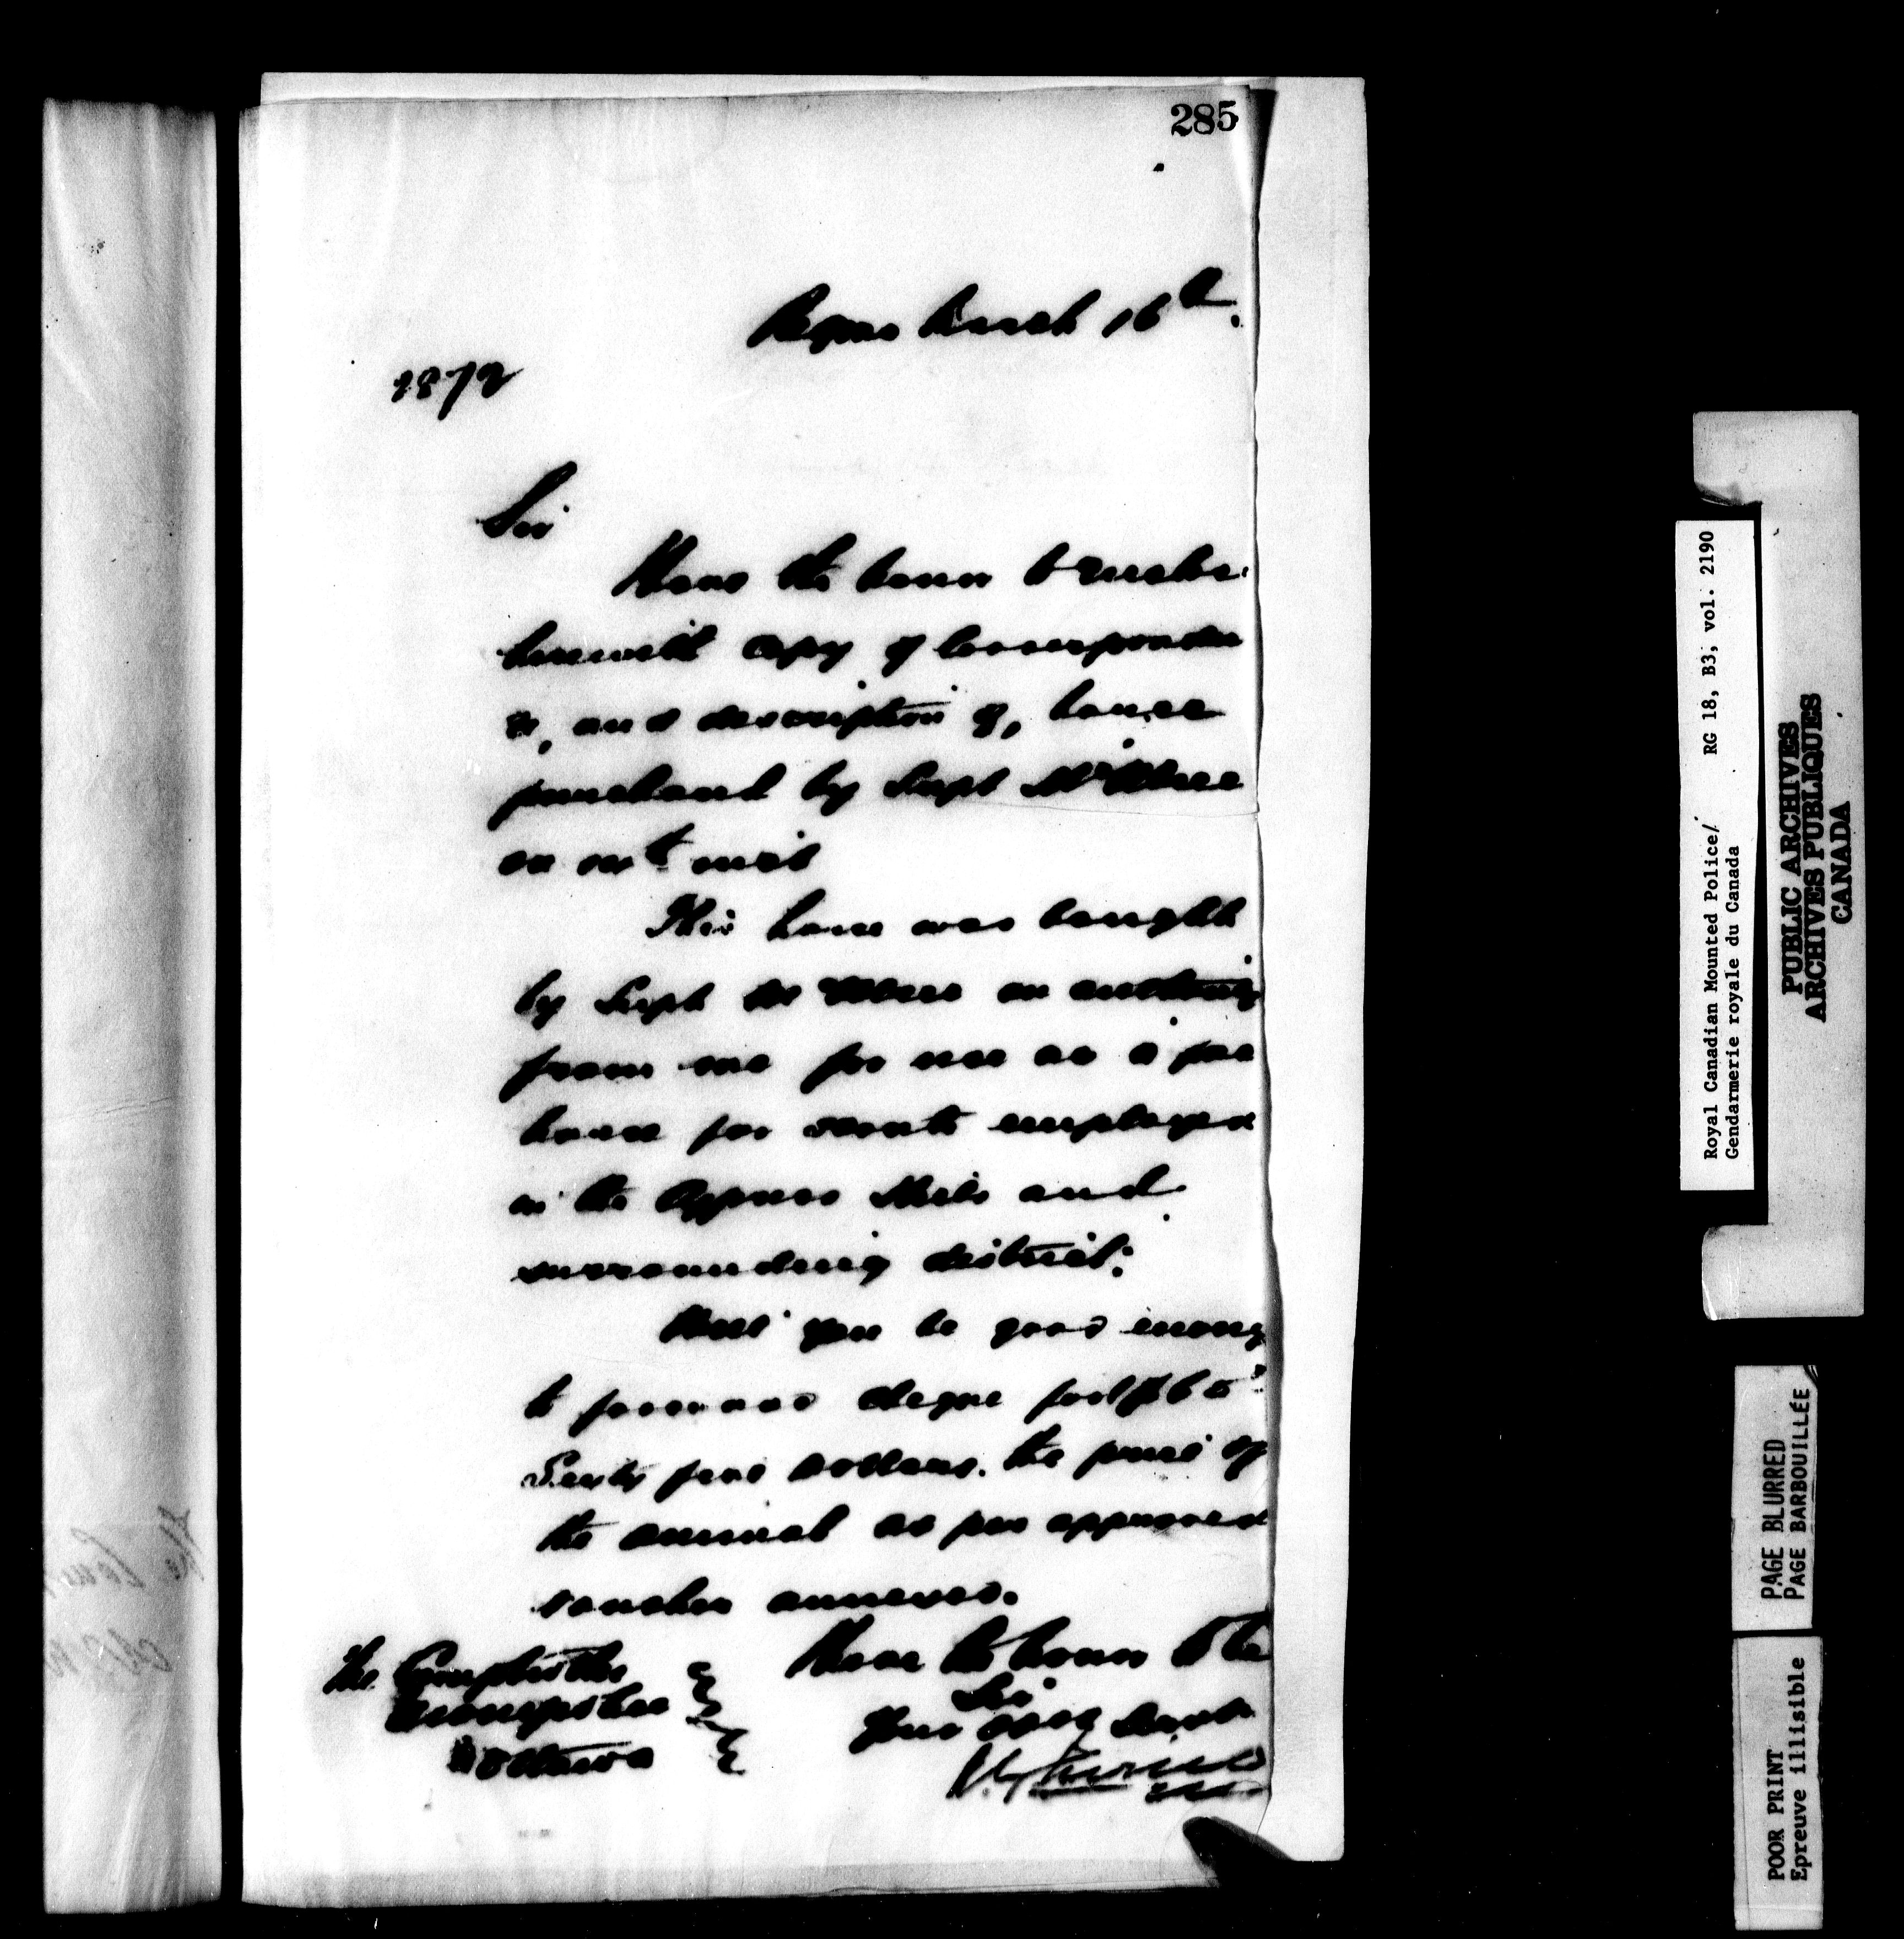 285
Regina March 16th.
Sir
I have the honor to enclose
herewith copy of Correspondence
re, and description of, horse
purchased by Supt McIllree
on inst
This horse was bought
by Supt McIllree on authority
from me for use as a pack
horse for scouts employed
in the Cypress Hills and
surrounding district.
Will you be good enough
to forward cheque for $65
Sixty five dollars. the price of
the animal as per approved
voucher annexed.
I have the honor to be
Sir
Your Obed Servt
The Comptroller
Ottawa
Royal Canadian Mounted Police/ RG 18, B3, vol. 2190
Gendarmerie royale du Canada
PUBLIC ARCHIVES
ARCHIVES PUBLIQUES
CANADA
PAGE BLURRED
PAGE BARBOUILLÉE
POOR PRINT
Epreuve illisible